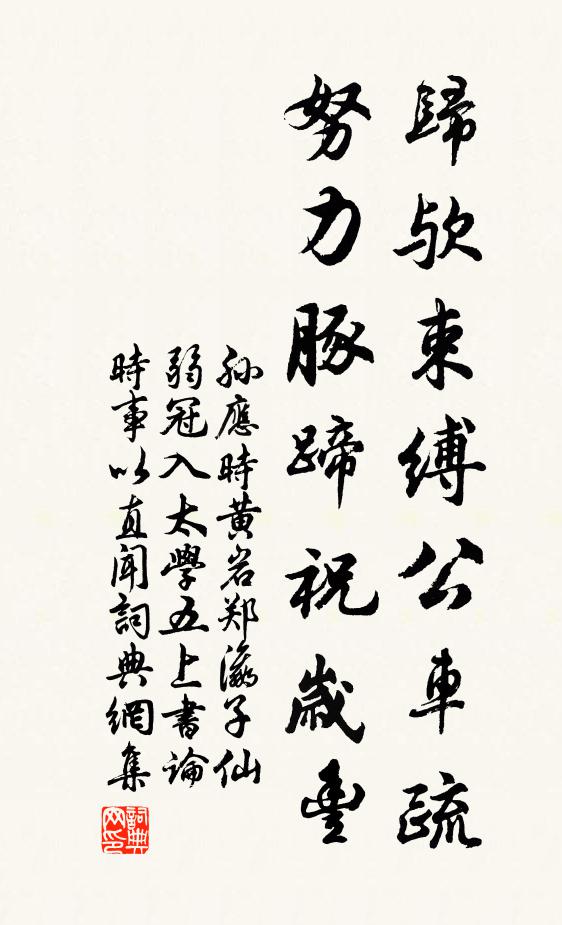 歸欤束縛公車疏
努力豚蹄祝歲豐
孙應時黄岩郑瀛子仙
弱冠入太學五上書論
時事以直聞詞典網集
詞典网印